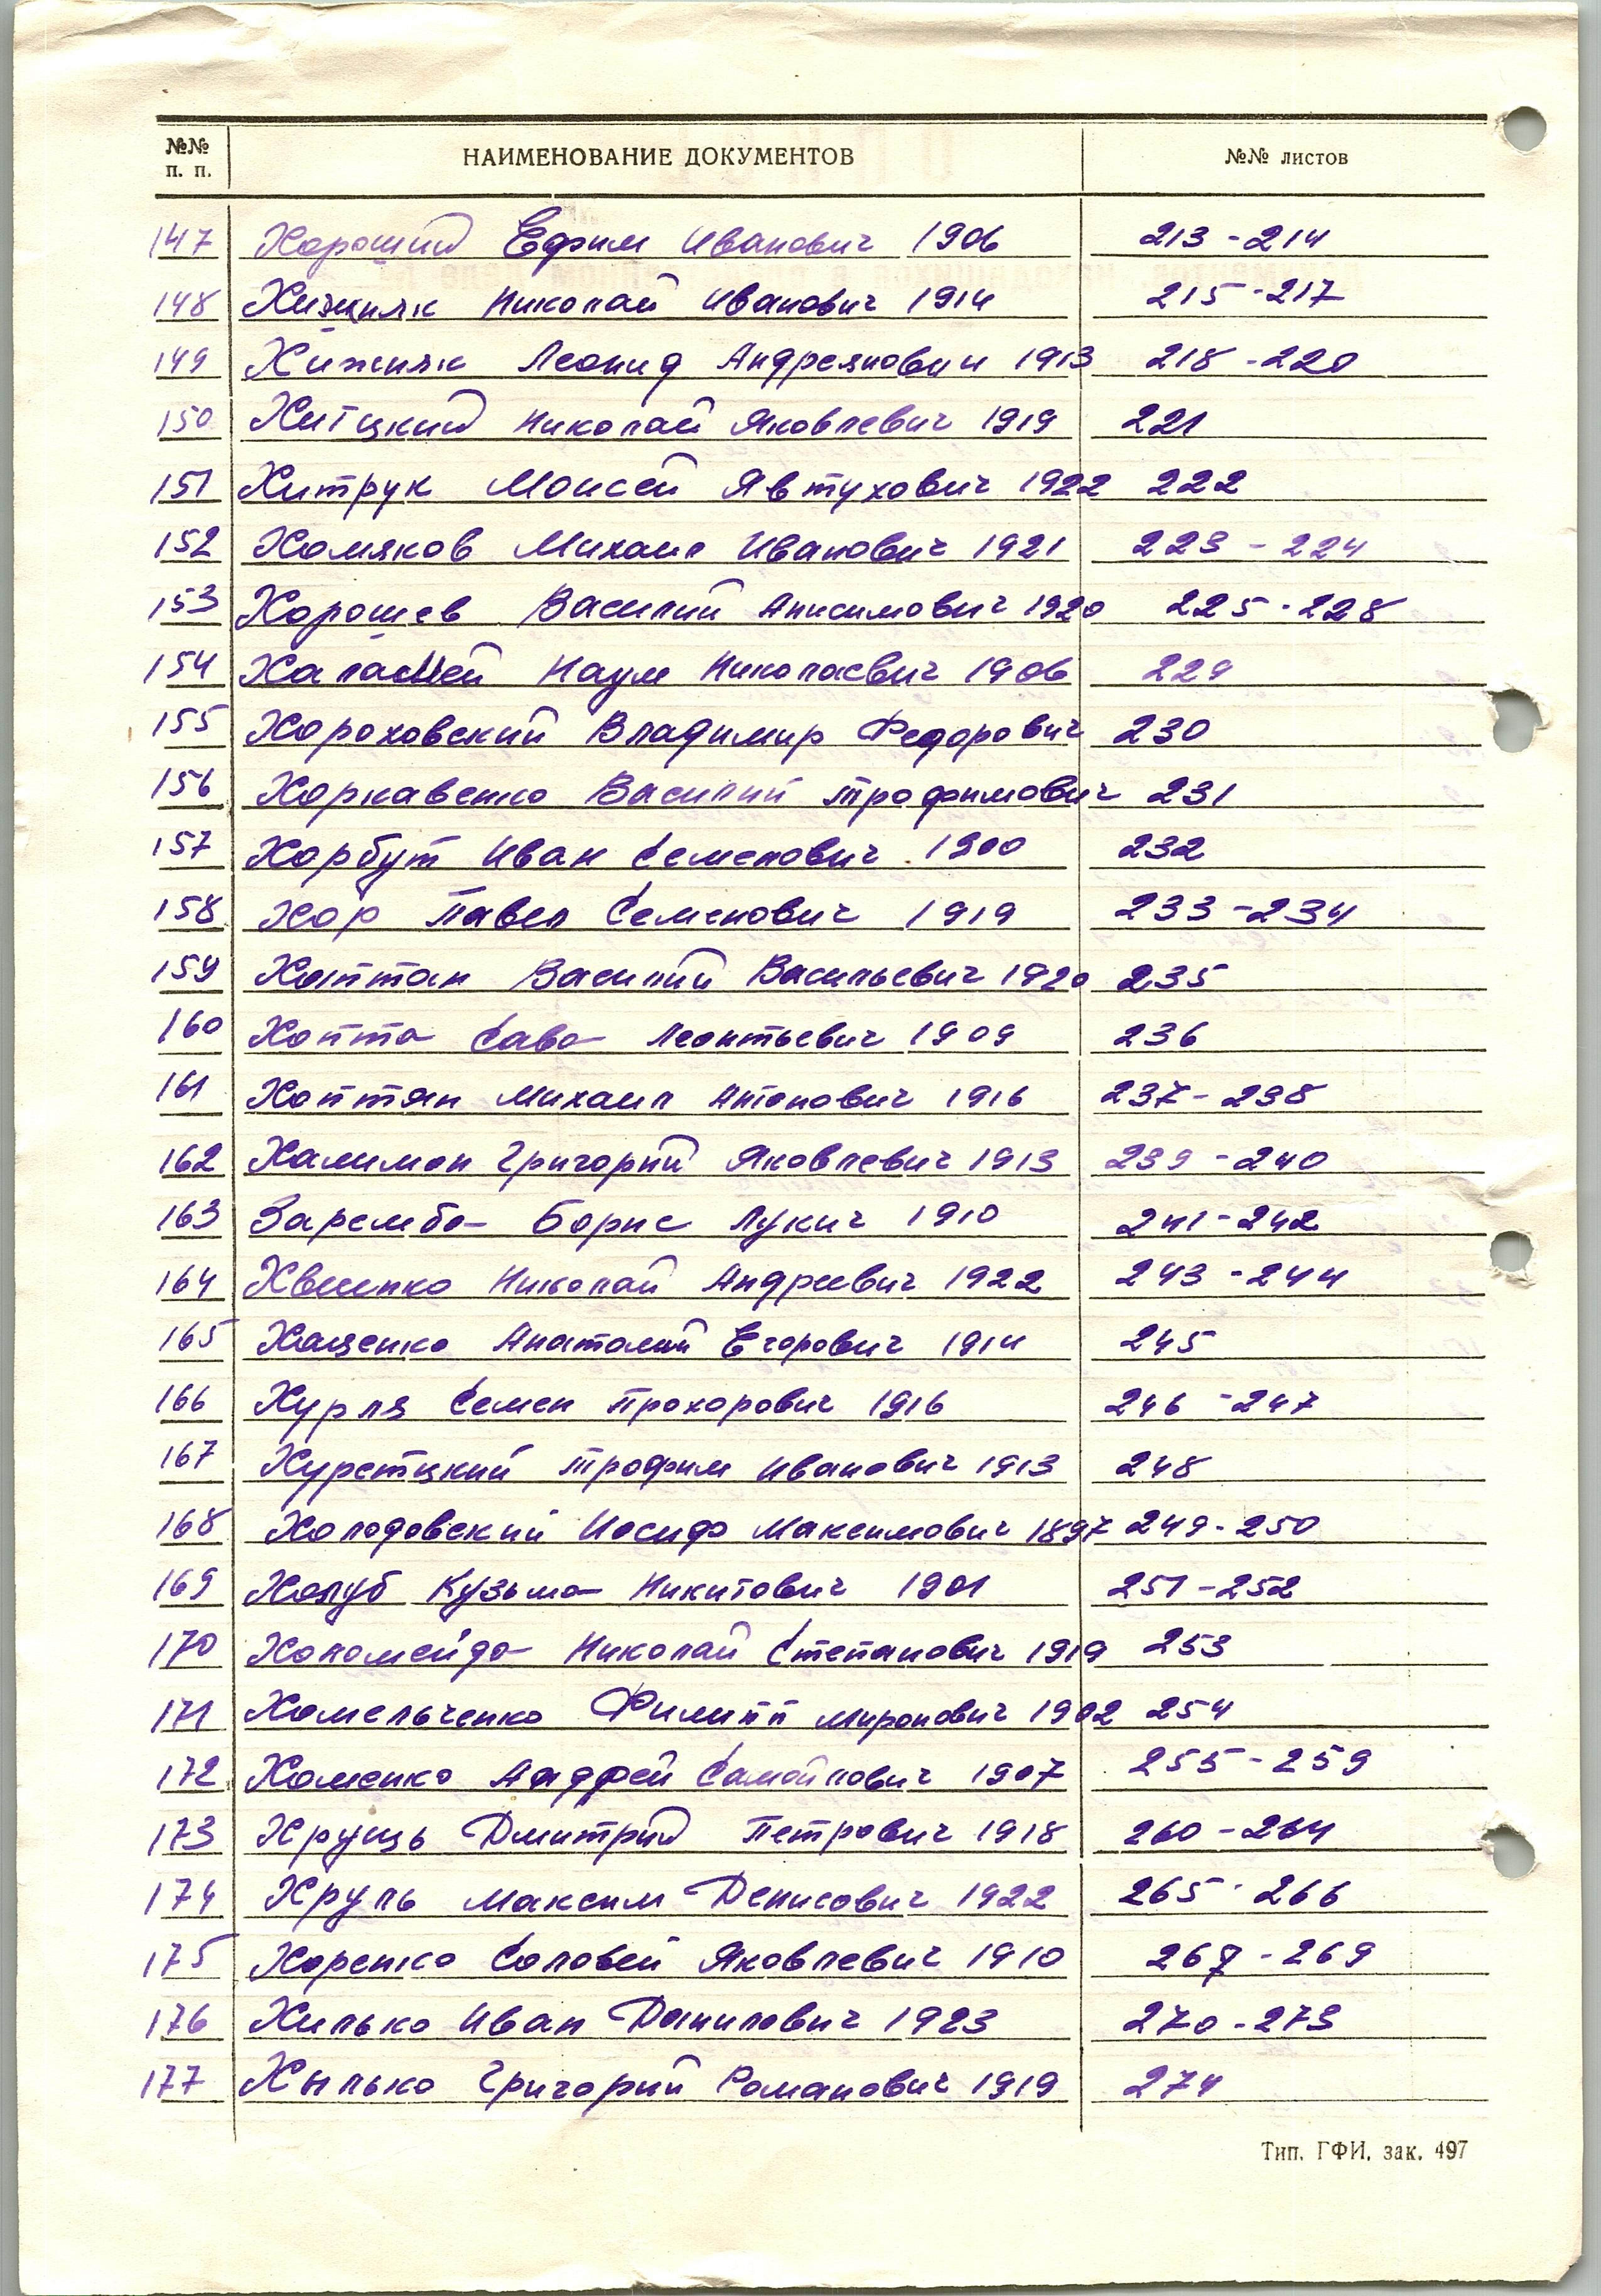 №№ п. п. НАИМЕНОВАНИЕ ДОКУМЕНТОВ №№ листов
147 Хороший Ефим Иванович 1906 213-214
148 Хижняк Николай Иванович 1914 215-217
149 Хижняк Леонид Андреянович 1913 218-220
150 Хитцкий Николай Яковлевич 1919 221
151 Хитрук Моисей Явтухович 1922 222
152 Хомяков Михаил Иванович 1921 223-224
153 Хорошев Василий Анисимович 1920 225-228
154 Наум Николаевич 1906 229
155 Хороховский Владимир Федорович 230
156 Хоркавенко Василий Трофимович 231
157 Хорбут Иван Семенович 1900 232
158 Хор Павел Семенович 1919 233-234
159 Василий Васильевич 1920 235
160 Хопта Сава Леонтьевич 1909 236
161 Хоптян Михаил Антонович 1916 237-238
162 Халимон Григорий Яковлевич 1913 239-240
163 Зарембо Борис Лукич 1910 241-242
164 Николай Андреевич 1922 243-244
165 Хащенко Анатолий Егорович 1914 245
166 Хурля Семен Прохорович 1916 246-247
167 Хуретцкий Трофим Иванович 1913 248
168 Холодовский Иосиф Максимович 1897 249-250
169 Холуб Кузьма Никитович 1901 251-252
170 Холомейдо Николай Степанович 1919 253
171 Хомельченко Филипп Миронович 1902 254
172 Хоменко Андрей Самойлович 1907 255-259
173 Хрущь Дмитрий Петрович 1918 260-264
174 Хруль Максим Денисович 1922 265-266
175 Хоренко Соловей Яковлевич 1910 267-269
176 Хилько Иван Данилович 1923 270-273
177 Хылько Григорий Романович 1919 274
Тип. ГФИ. зак. 497